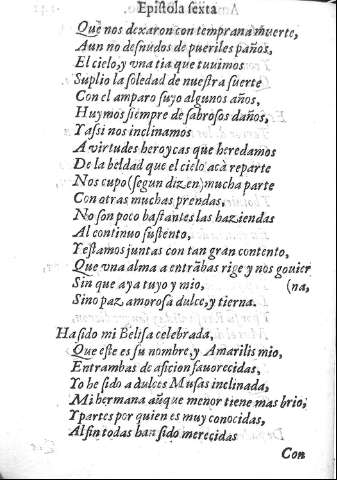 Epistola sexta
Que nos dexaron con temprana muerte,
Aun no desnudos de pueriles paños,
El cielo, y vna tia que tuuimos
Suplio la soledad de nuestra suerte
Con el amparo suyo algunos años,
Huymos siempre de sabrosos daños,
Y assi nos inclinamos
A virtudes heroycas que heredamos
De la beldad que el cielo acà reparte
Nos cupo (segun dizen) mucha parte
Con otras muchas prendas,
No son poco bastantes las haziendas
Al continuo sustento,
Y estamos juntas con tan gran contento,
Que vna alma a entrãbas rige y nos gouier
Sin que aya tuyo y mio, (na,
Sino paz amorosa dulce, y tierna.
Ha sido mi Belisa celebrada,
Que este es su nombre, y Amarilis mio,
Entrambas de aficion fauorecidas,
Yo he sido a dulces Musas inclinada,
Mi hermana aũque menor tiene mas brio,
Y partes por quien es muy conocidas,
Al fin todas han sido merecidas
Con